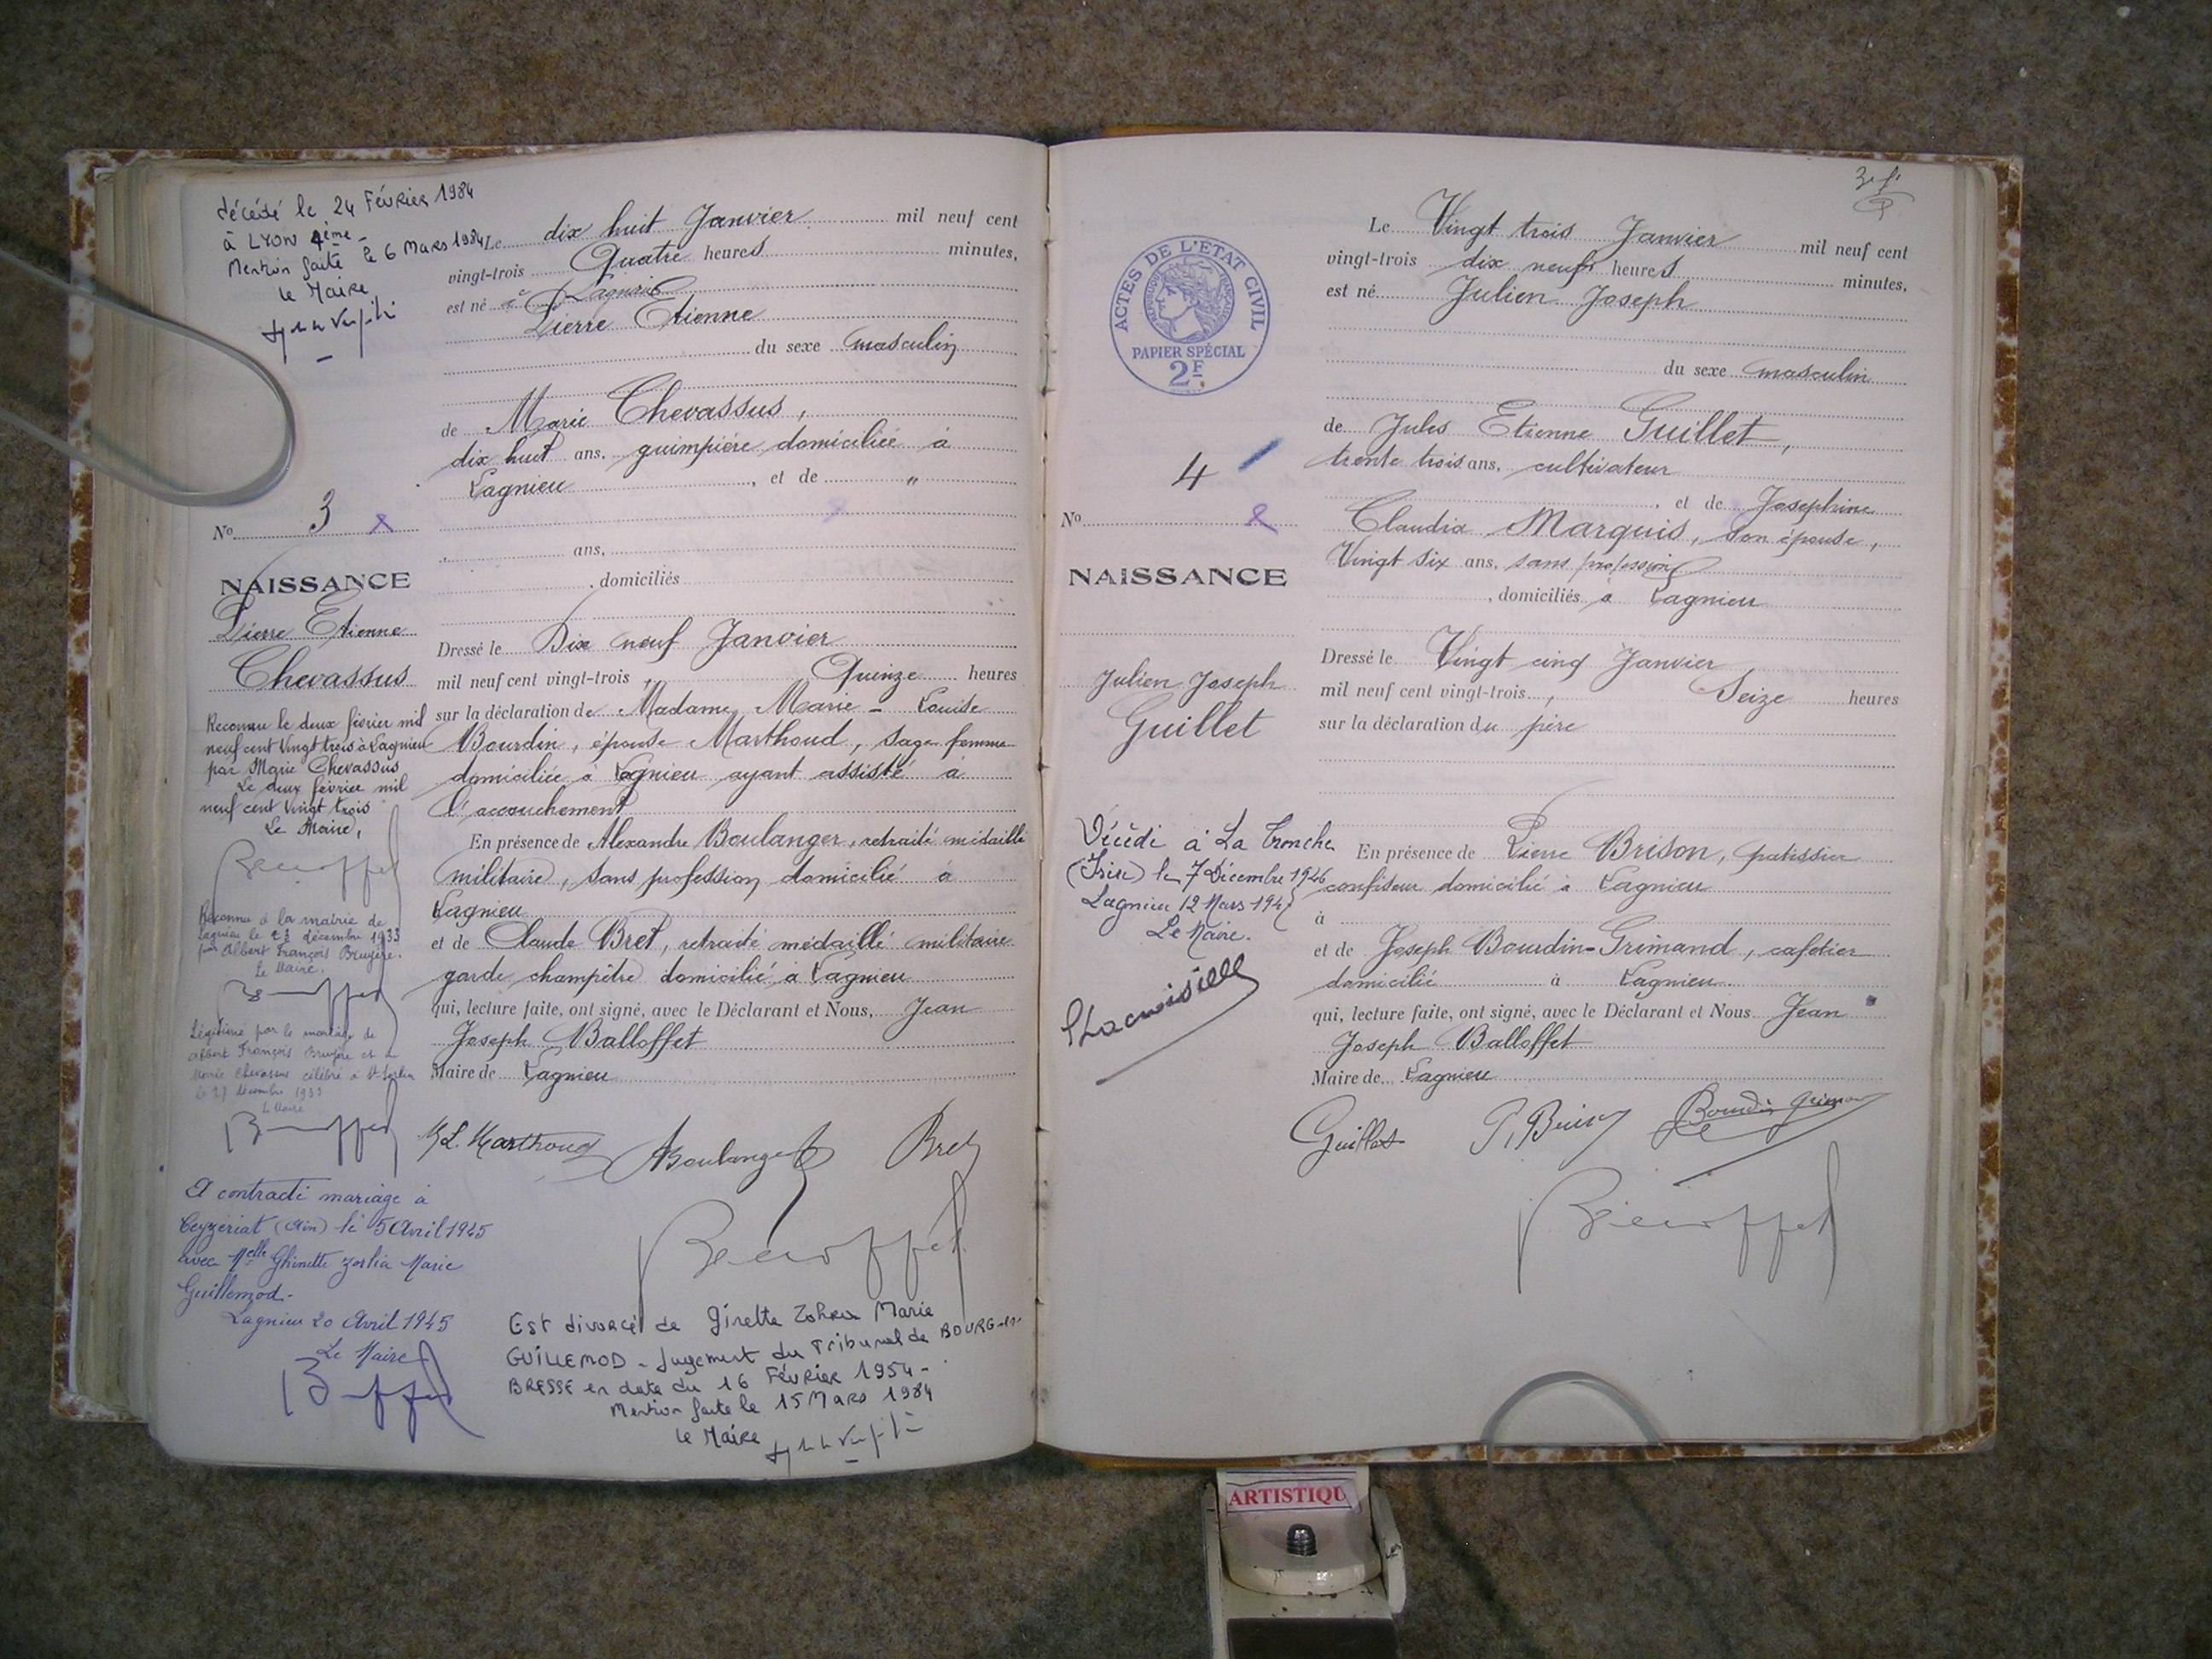 décédé le 24 Février 1984
à LYON 4ème -
Mention faite le 6 Mars 1984
le Maire
Le dix huit Janvier mil neuf cent
vingt-trois Quatre heures minutes,
est né à Lagnieu
Pierre Etienne
du sexe masculin
de Marie Chevassus,
dix huit ans, guimpière domiciliée à
Lagnieu, et de "
ans,
, domiciliés
No 3
NAISSANCE
Pierre Etienne
Chevassus
Reconnu le deux février mil
neuf cent Vingt trois à Lagnieu
par Marie Chevassus
Le deux février mil
neuf cent Vingt trois
Le Maire,
Reconnu à la mairie de
Lagnieu le 23 décembre 1933
par Albert François Bruyère.
Le Maire.
Légitimé par le mariage de
Albert François Bruyère et de
Marie Chevassus célébré à St-Sorlin
le 27 décembre 1933
Le Maire
A contracté mariage à
Ceyzeriat (Ain) le 5 Avril 1945
avec Melle Ghinette Marie
Guillemod -
Lagnieu 20 Avril 1945
Le Maire
Dressé le Dix neuf Janvier
mil neuf cent vingt-trois, Quinze heures
sur la déclaration de Madame Marie - Louise
Bourdin, épouse Marthoud, sage femme
domiciliée à Lagnieu ayant assisté à
l'accouchement
En présence de Alexandre Boulanger, retraité médaillé
militaire, sans profession domicilié à
Lagnieu
et de Claude Bret, retraité médaillé militaire
garde champêtre domicilié à Lagnieu
qui, lecture faite, ont signé, avec le Déclarant et Nous, Jean
Joseph Balloffet
Maire de Lagnieu
M L. Marthoud ABoulanger Bret
Est divorcé de Ginette Marie
GUILLEMOD - Jugement du Tribunal de BOURG-en-
BRESSE en date du 16 Février 1954 -
Mention faite le 15 Mars 1984
le Maire
Le Vingt trois Janvier mil neuf cent
vingt-trois dix neuf heures minutes,
est né Julien Joseph
du sexe masculin
de Jules Etienne Guillet,
trente trois ans, cultivateur
, et de Josephine
Claudia Marquis, son épouse,
Vingt six ans, sans profession
, domiciliés à Lagnieu
ACTES DE L'ETAT CIVIL
REPUBLIQUE FRANÇAISE
PAPIER SPÉCIAL
2F.
4
No
NAISSANCE
Julien Joseph
Guillet
Décédé à La Tronche
(Isère) le 7 Décembre 1946
Lagnieu 12 Mars 1947
Le Maire.
Dressé le Vingt cinq Janvier
mil neuf cent vingt-trois, Seize heures
sur la déclaration du père
En présence de Pierre Brison, patissier
confiseur domicilié à Lagnieu
à
et de Joseph Bourdin-Grimand, cafetier
domicilié à Lagnieu.
qui, lecture faite, ont signé, avec le Déclarant et Nous Jean
Joseph Balloffet
Maire de Lagnieu
Guillet
ARTISTIQU